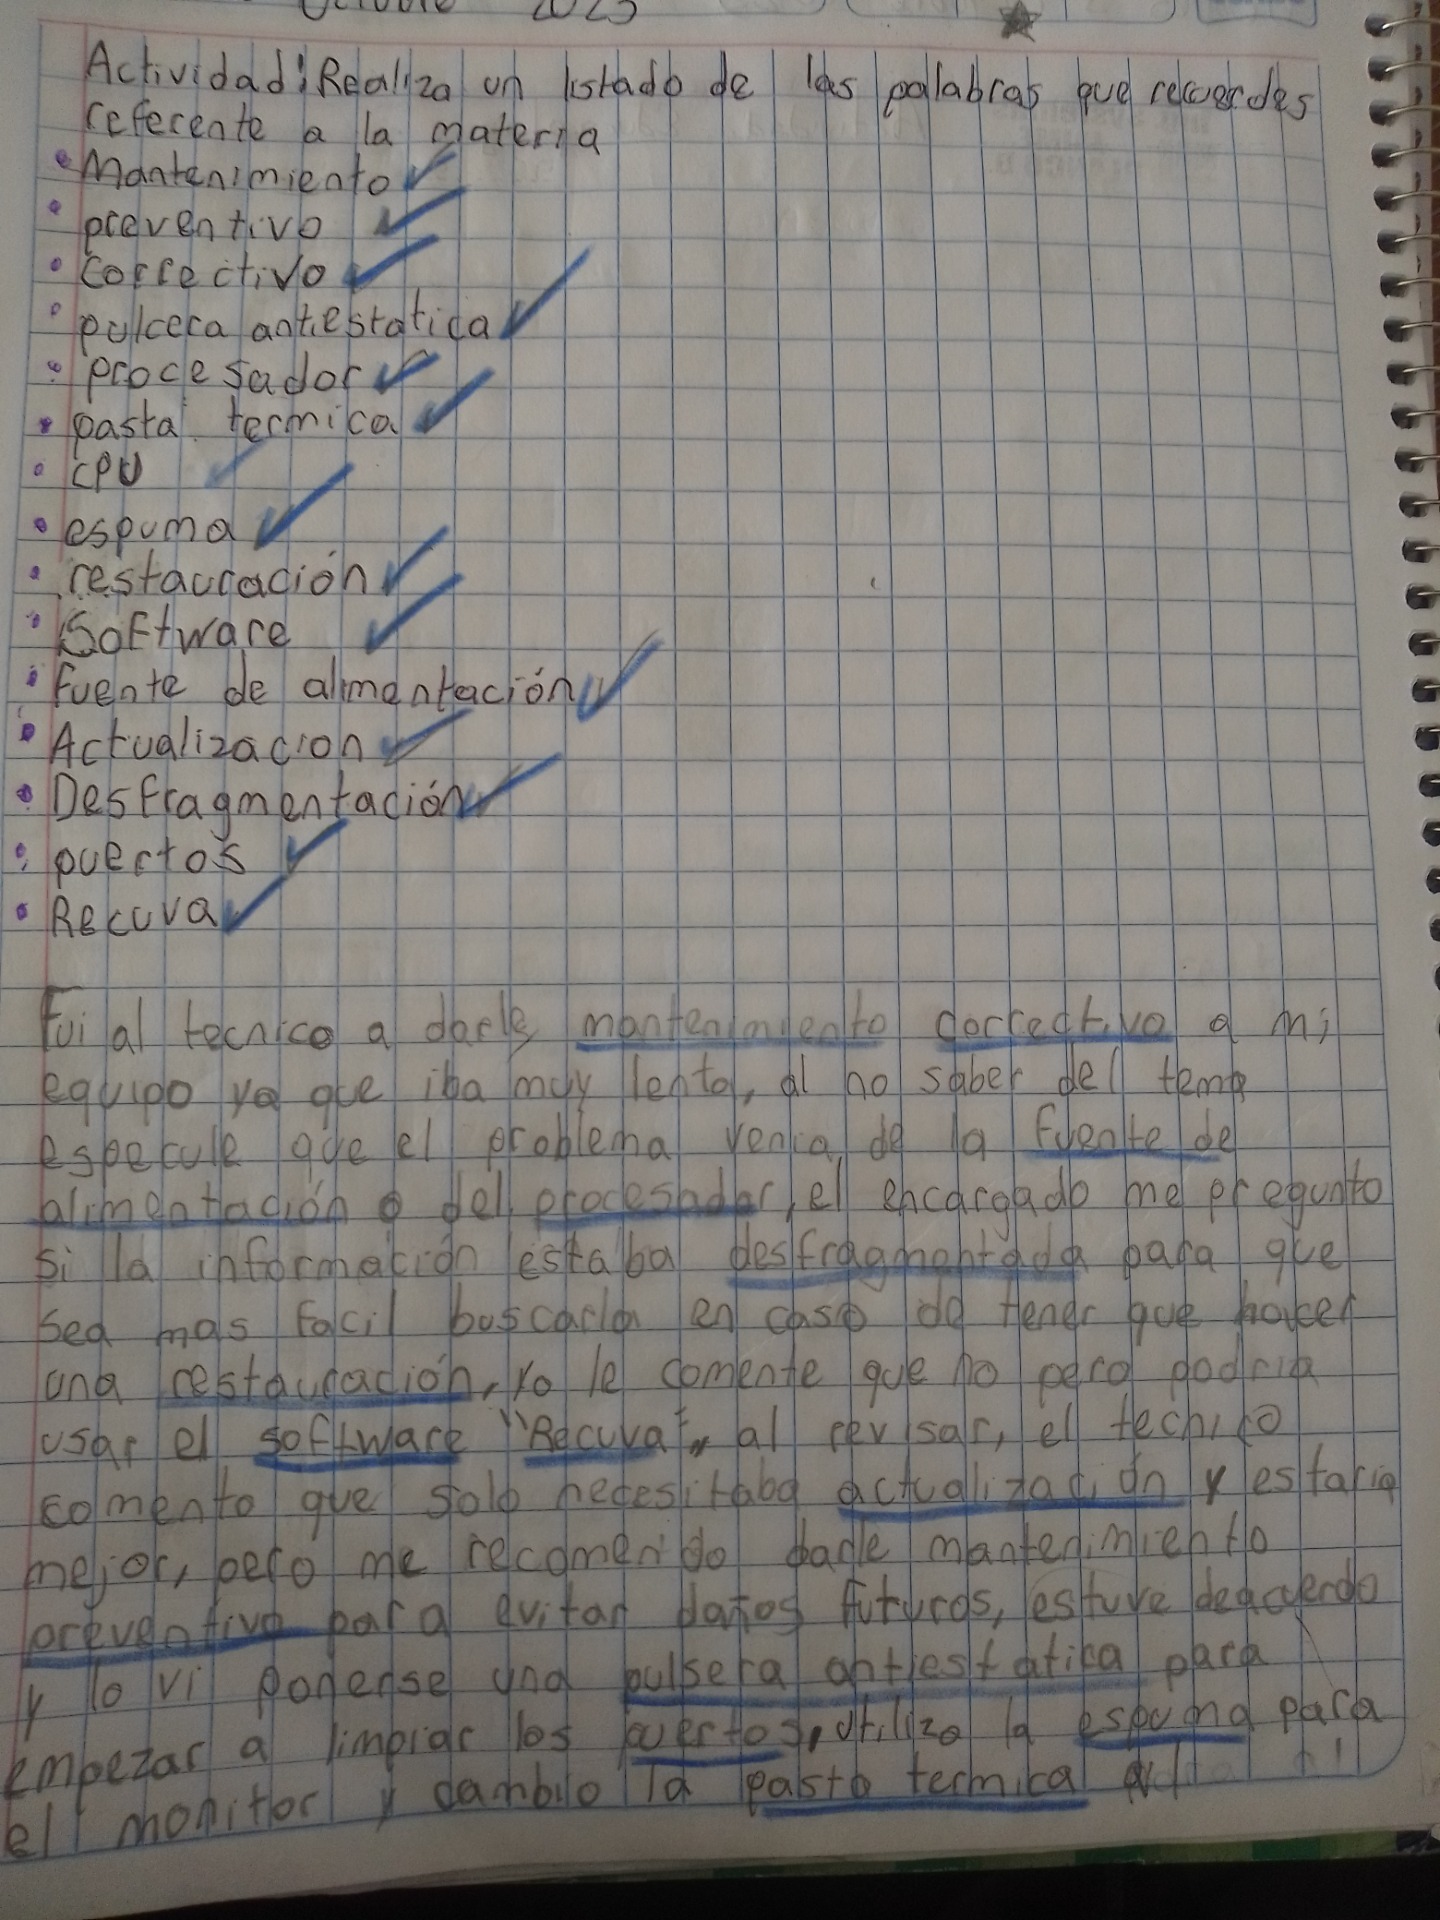 Octubre 2023
Actividad: Realiza un listado de las palabras que recuerdes
referente a la materia
• Mantenimiento
• preventivo
• correctivo
• pulcera antiestatica
• procesador
• pasta termica
• CPU
• espuma
• restauración
• Software
• fuente de alimentación
• Actualizacion
• Desfragmentación
• puertos
• Recuva
Fui al tecnico a darle mantenimiento correctivo a mi
equipo ya que iba muy lento, al no saber del tema
especule que el problema venia de la fuente de
alimentación o del procesador, el encargado me pregunto
si la información estaba desfragmentada para que
sea mas facil buscarla en caso de tener que hacer
una restauración, yo le comente que no pero podria
usar el software "Recuva", al revisar, el tecnico
comento que solo necesitaba actualización y estaria
mejor, pero me recomendo darle mantenimiento
preventivo para evitar daños futuros, estuve deacuerdo
y lo vi ponerse una pulsera antiestatica para
empezar a limpiar los puertos, utilizo la espuma para
el monitor y cambio la pasta termica